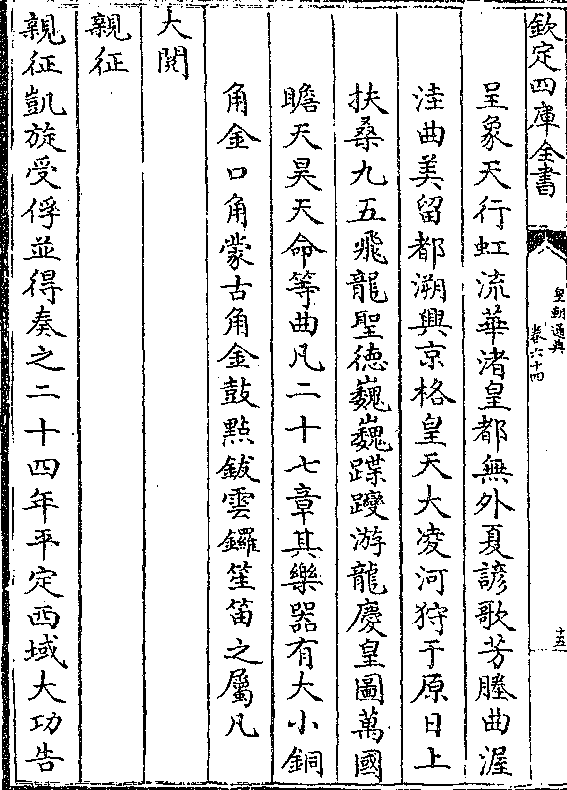 欽定四庫全書
皇朝通典
卷六十四
十五
呈象天行虹流華渚皇都無外夏諺歌芳塍曲渥
洼曲美留都溯興京格皇天大凌河狩于原日上
扶桑九五飛龍聖德巍巍蹀躞游龍慶皇圖萬國
瞻天昊天命等曲凡二十七章其樂器有大小銅
角金口角蒙古角金鼓點鈸雲鑼笙笛之屬凡
大閱
親征
親征凱旋受俘並得奏之二十四年平定西域大功告